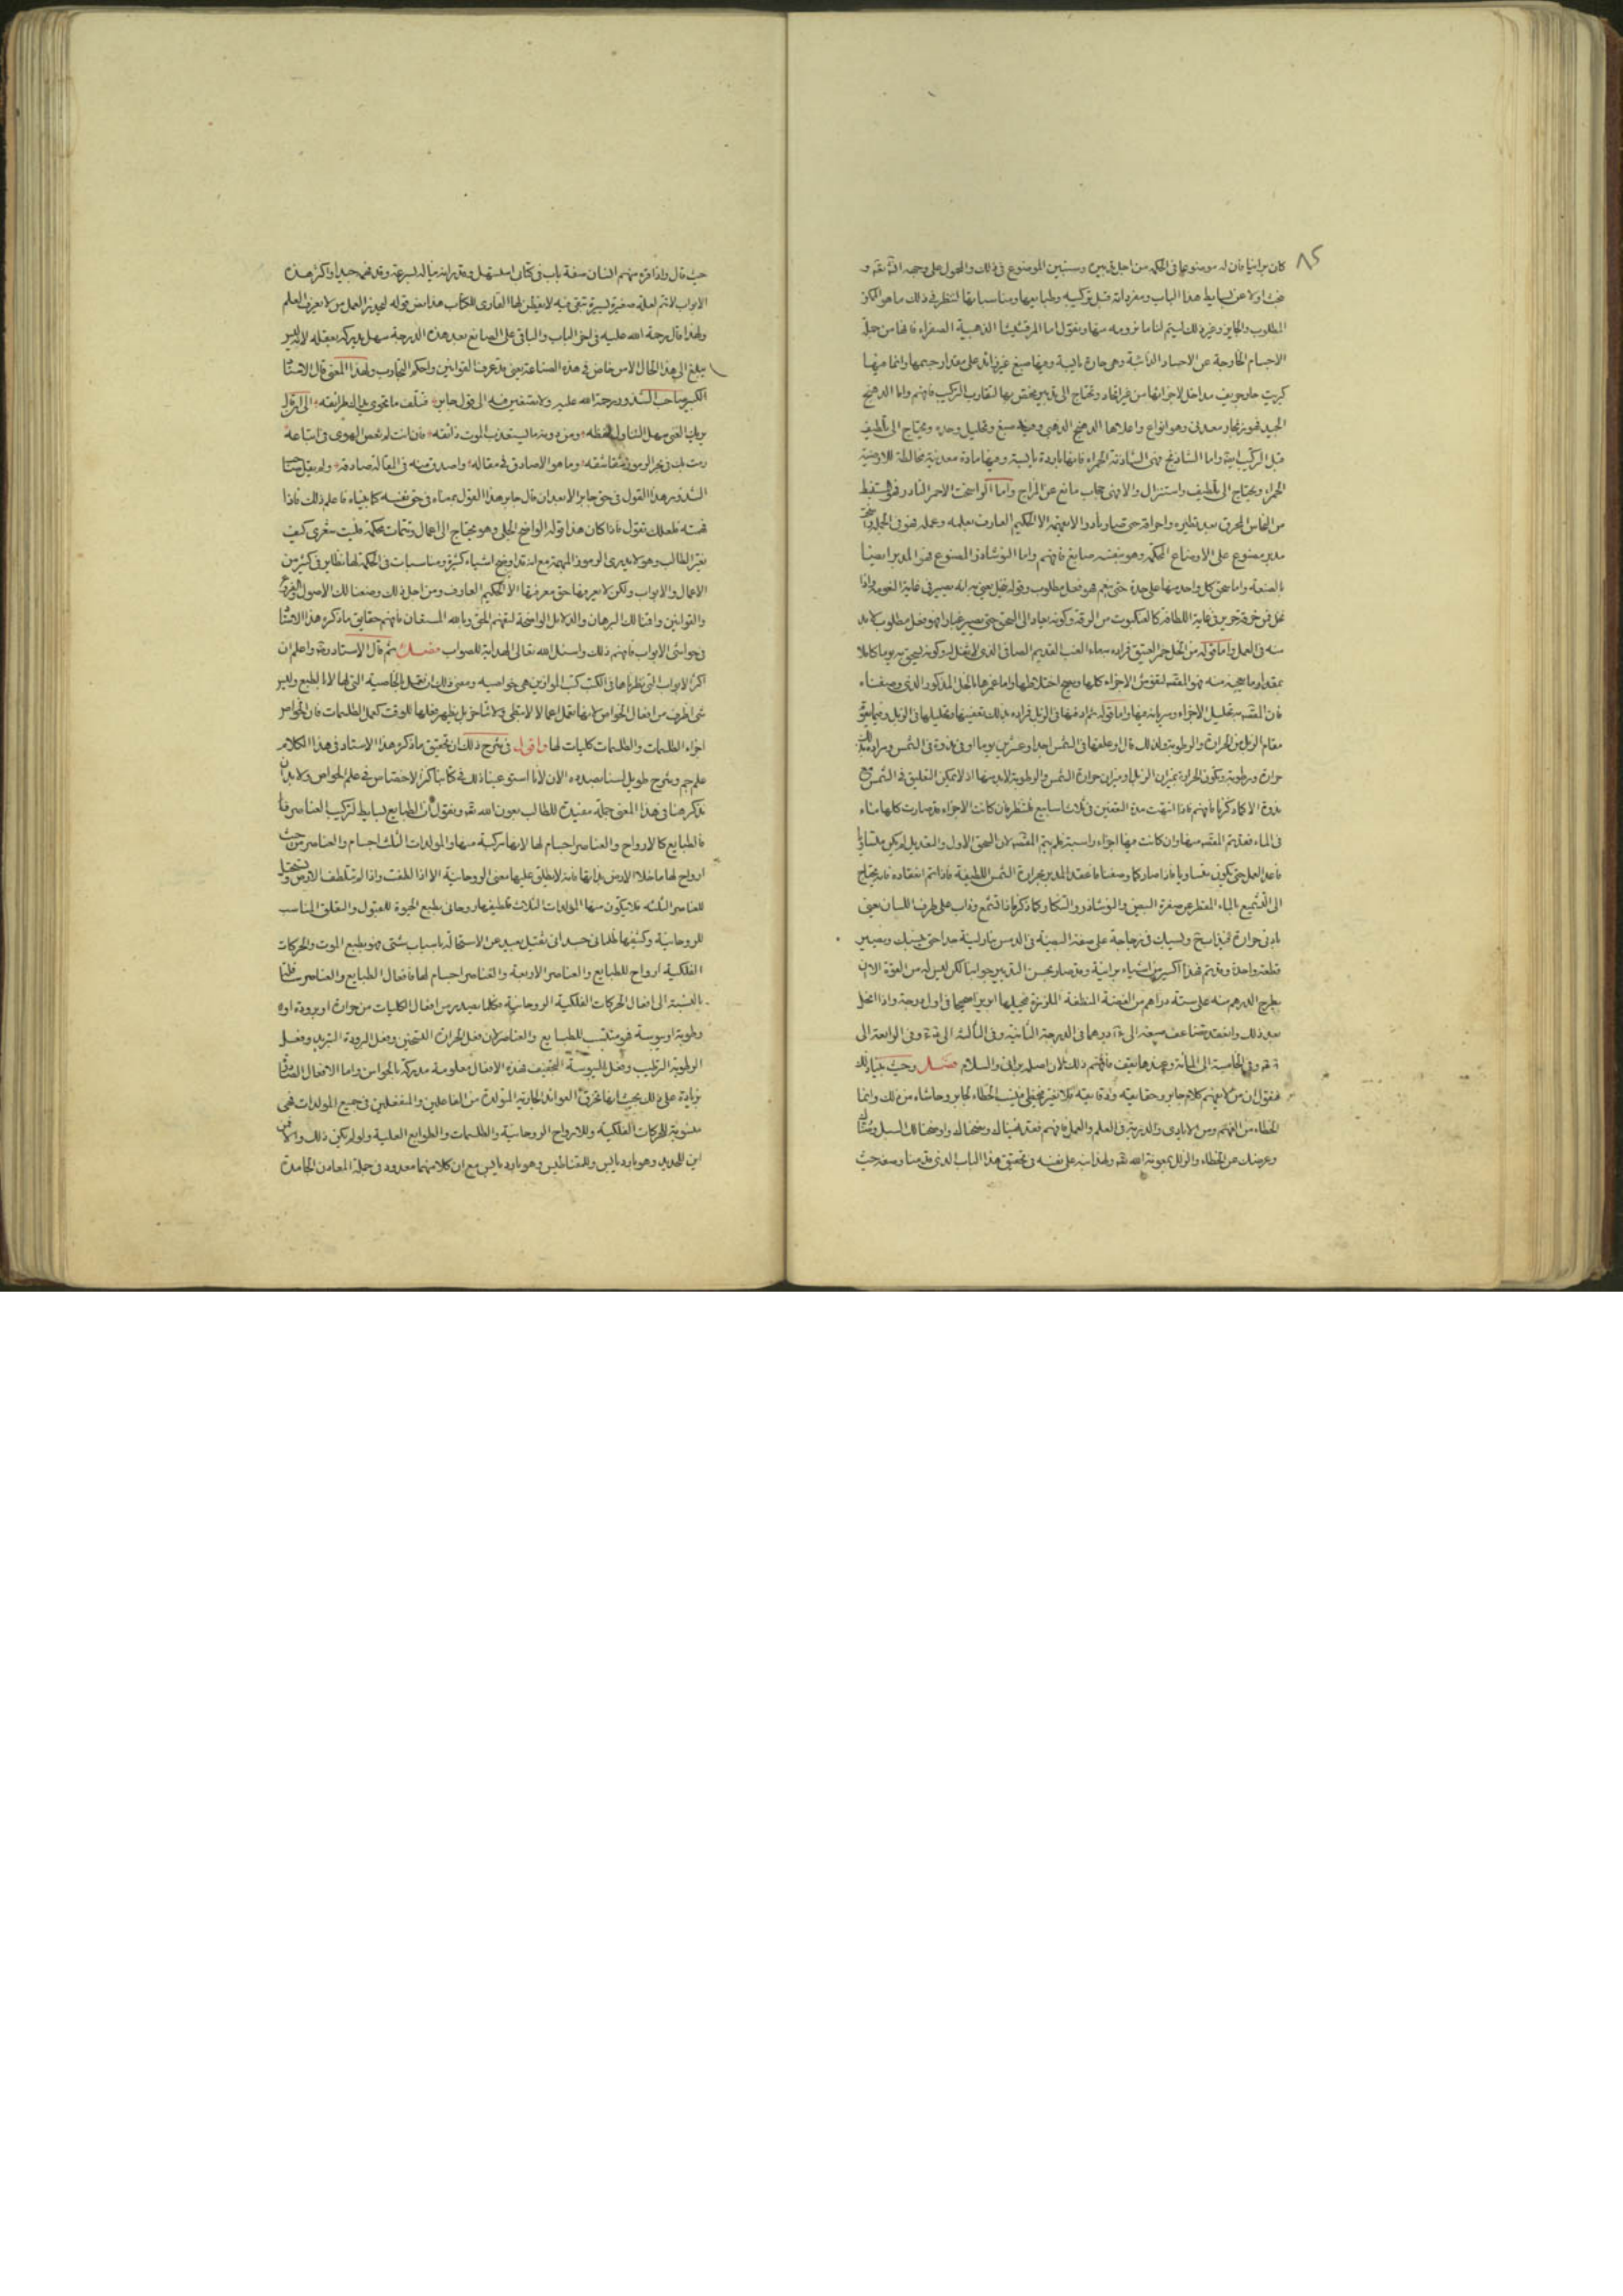 ٨٥
كان برانيا فان له موضوعا في الحكمة من اجل تدبيره وسنبين الموضوع في ذلك والمحول على وجهه ان شاء الله تعالى و
اولا عن بسايط هذا الباب ومفرداته قبل تركيبه وطبايعها ومناسباتها لننظر في ذلك ما هو الممكن
المطلوب والجايز وغير ذلك ليتم لنا ما نرومه منها ونقول اما المرقشيثا الذهبية الصفراء فانها من جملة
الاجسام الخارجة عن الاجساد الذائبة وهي حارة يابسة وفيها صبغ غير زائد على مقدار جسمها وانما فيها
كبريت حار وتجويف مداخل لاجزائها من غير اتحاد وتحتاج الى تدبير يختص بها لتقارب التركيب فافهم واما الدهنج
الجيد فهو بخار معدني وهو انواع واعلاها الدهنج الذهبي وفيه صبغ وتحليل وحدة ويحتاج الى تلطيف
قبل التركيب ايضا واما الشاذنج فهي الشاذنة الحمراء فانها باردة يابسة وفيها مادة معدنية مخالطة للارضية
الحمراء ويحتاج الى تلطيف واستنزال والا فهي حجاب مانع عن المزاج واما الراسخت الاحمر النادر فهو المستنبط
من النحاس المحرق بعد تطهيره واحراقه حتى صار نادرا لا يفهمه الا الحكيم العارف بعلمه وعمله فهو في الجملة
مدبر مصنوع على الاوضاع الحكمية وهو بنفسه صابغ فافهم واما النوشاذر المصنوع فهو المدبر ايضا
بالصنعة واما سحق كل واحد منها على حدة حتى ينعم هو فعل مطلوب وقوله نخل يعني به انه يصير في غاية النعومة واذا
نخل فمن خرقة حرير في غاية اللطافة كالعنكبوت من الرقة وكونه يعاد الى السحق حتى يصير غبارا فهو فعل مطلوب لا بد
منه في العمل واما قوله من الخل خمر العتيق فمراده بماء العنب القديم الصافي الذي لا وكونه يسحق به يوما كاملا
بمقدار ما يعجن منه فهو لتغوص الاجزاء كلها ويصح اختلاطها واما غمرها بالخل المذكور الذي وصفناه
فان القصد به تحليل الاجزاء وسريانه فيها واما قوله ثم ادفنها في الزبل فمراده بذلك تعفينها وتحليلها في الزبل وفيما يقوم
مقام الزبل من الحرارة والرطوبة ولذلك قال وعلقها في الشمس احدا وعشرين يوما او في ندوة في الشمس ومراده بذلك
حرارة ورطوبة وتكون الحرارة بميزان الزبل او ميزان حرارة الشمس والرطوبة لا بد منها اذ لا يمكن التعليق في الشمس مع
ندوة الا كما ذكرنا فافهم فاذا انتهت مدة التعفين في ثلاث اسابيع فتنظر فان كانت الاجزاء قد صارت كلها ماء
في الماء فقد تم القصد منها وان كانت فيها اجزاء راسبة فلم يتم القصد لان السحق الاول والتعديل لم يكن متساويا
فاعد العمل حتى يكون متساويا فاذا صار كما وصفنا فاعقد المدبر بحرارة الشمس اللطيفة فاذا تم انعقاده فانه يحتاج
الى التشميع بالماء المقطر عن صفرة البيض والنوشاذر والتنكار وكما ذكرنا فاذا تشمع وذاب على طرف اللسان يعني
بادنى حرارة فحينئذ ويسبك في زجاجة على صفة البيضة في الدمس بنار لينة جدا حتى ينسبك ويصير
قطعة واحدة وقد تم هذا اكسير من اشياء برانية وقد صار بحسن التدبير جوانيا لكن ليس له من القوة الان
يطرح الدرهم منه على ستة دراهم من الفضة المنظفة الملززة فيحيلها ابريزا صحيحا في اول درجة واذا انحل
بعد ذلك وانعقد تضاعف صبغه الى دوهما في الدرجة الثانية وفي الثالثة الى وفي الرابعة الى
وفي الخامسة الى المائة وعندها يقف فافهم ذلك لان اصله براني والسلام فصل وحيث
فنقول ان من لا يفهم كلام جابر وحقايقه ودقايقه فلا تغير يخطئ فينسب الخطاء لجابر وحاشاه من ذلك وانما
الخطاء من الفهم ومن الايادي والدربة في العلم والعمل فافهم فقد نبهناك ونصحناك واوضحنا لك السبل
وعرضك عن الخطاء والزلل بمعونة الله تعالى ولهذا نبه على نفسه في تحقيق هذا الباب الذي قدمنا وصفه حيث
حيث قال واذا قرء منهم انسان صفة باب في كتابي استسهل وقدر انه يناله بسرعة وقد فهم جيدا واكثر هذه
الابواب لا تتم لعلة صغيرة يسيرة تبقى فيه لا يفطن لها القاري للكتاب هذا نص قوله لتحذير العمل من لا يعرف العلم
ولهذا قال رحمة الله عليه في لحق الباب والباقي على الصانع بعد هذه الدرجة سهل يدركه بعقله لانه ليس
يبلغ الى هذا الحال الا من خاض في هذه الصناعة يعني قد عرف القوانين واحكم التجارب ولهذا المعنى قال الاستاذ
الكبير صاحب الشذور رحمة الله عليه ولا تستفيضن فيه الى قول جابر فتتلف ما تحوي يداك طرائفه الى قوله
يريك الغنى سهل التناول لفظه ومن دونه ما يستعذب الموت ذائقه فان انت لم تعص الهوى في اتباعه
رمت بك في بحر الرموز شقاشقه وما هو الا صادق في مقاله واصدق منه في المقالة صادقه ولم يقل صاحب
الشذور هذا القول في حق جابر الا بعد ان قال جابر هذا القول بمعناه في حق نفسه كما بيناه فاعلم ذلك فاذا
فهمته فلعلك تقول فاذا كان هذا قوله الواضح الجلي وهو يحتاج الى اعمال وتتمات محكمة فليت شعري كيف
يغتر الطالب وهو لا يدري الرموز المهمة مع انه قد اوضح اشياء كثيرة ومناسبات في الحكمة لها نظاير في كثير من
الاعمال والابواب ولكن لا يعرفها حق معرفتها الا الحكيم العارف ومن اجل ذلك وضعنا لك الاصول والفروع
والقوانين واقمنا لك البرهان والدلايل الواضحة لتفهم الحق وبالله المستعان فافهم حقايق ما ذكره هذا الاستاذ
في حواشي الابواب فافهم ذلك واسئل الله تعالى الهداية للصواب فصل ثم قال الاستاد رحمه واعلم ان
اكثر الابواب التي نظرناها في الكتب كتب الموازين هي خواصيه ومعنى ذلك ان تفعل بالخاصية التي لها لا بالطبع وليس
شي اظرف من افعال الخواص لانها تعمل اعمالا لا تبطئ ولا تتأخر بل يظهر فعلها للوقت كعمل الطلسمات فان الخواص
اجزاء الطلسمات والطلسمات كليات لها واقول في شرح ذلك ان تحقيق ما ذكره هذا الاستاد في هذا الكلام
علم جم وشرح طويل لسنا بصدده الان لانا استوعبنا ذلك في كتابنا كنز الاختصاص في علم الخواص ولا بد ان
نذكر هنا في هذا المعنى جملة مفيدة للطالب بعون الله تعالى ونقول ان الطبايع بسايط لتركيب العناصر
فالطبايع كالارواح والعناصر اجسام لها لانها مركبة منها والمولدات الثلث اجسام والعناصر من حيث
ارواح لها ما خلا الارض بذاتها فانه لا يطلق عليها معنى الروحانية الا اذا لطفت واذا لم تتلطف الارض
للعناصر الثلثه فلا يكون منها المولدات الثلاث فلطيفها روحاني بطبع الحيوة للقبول والتعلق المناسب
للروحانية وكثيفها ظلماني جسداني ثقيل بعيد عن الاستحالة باسباب شتى فهو بطبع الموت والحركات
الفلكية ارواح للطبايع والعناصر الاربعة والعناصر اجسام لها فافعال الطبايع والعناصر
بالنسبة الى افعال الحركات الفلكية الروحانية فكلما يصدر من افعال الكليات من حرارة او برودة او
رطوبة او يبوسة فهو منتسب للطبايع والعناصر لان فعل الحرارة التسخين وفعل البرودة التبريد وفعل
الرطوبة الترطيب وفعل اليبوسة التجفيف فهذه الافعال معلومة مدركة بالحواس واما الافعال
بزيادة على ذلك بحيث انها تخرق العوائد الجارية المتولدة من الفاعلين والمنفعلين في جميع المولدات فهي
منسوبة للحركات الفلكية وللارواح الروحانية والطلسمات والطوابع العلية ولو لم يكن ذلك والا فمن
اين للحديد وهو بارد يابس وللمغناطيس وهو بارد يابس مع ان كلا منهما معدود في جملة المعادن الجامدة